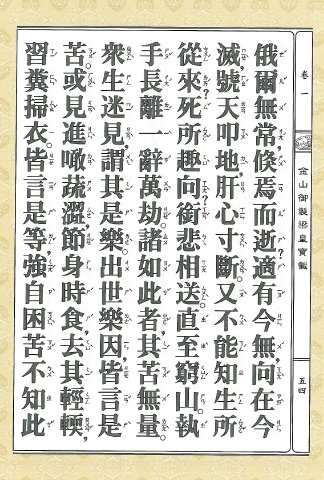 卷一
金山御製梁皇寶懺
五四
俄爾無常，倏焉而逝？適有今無，向在今
滅，號天叩地，肝心寸斷。又不能知生所
從來？死所趣向？銜悲相送，直至窮山，執
手長離，一辭萬劫。諸如此者，其苦無量。
衆生迷見，謂其是樂，出世樂因，皆言是
苦。或見進噉蔬澀，節身時食，去其輕軟，
習糞掃衣。皆言是等，強自困苦，不知此